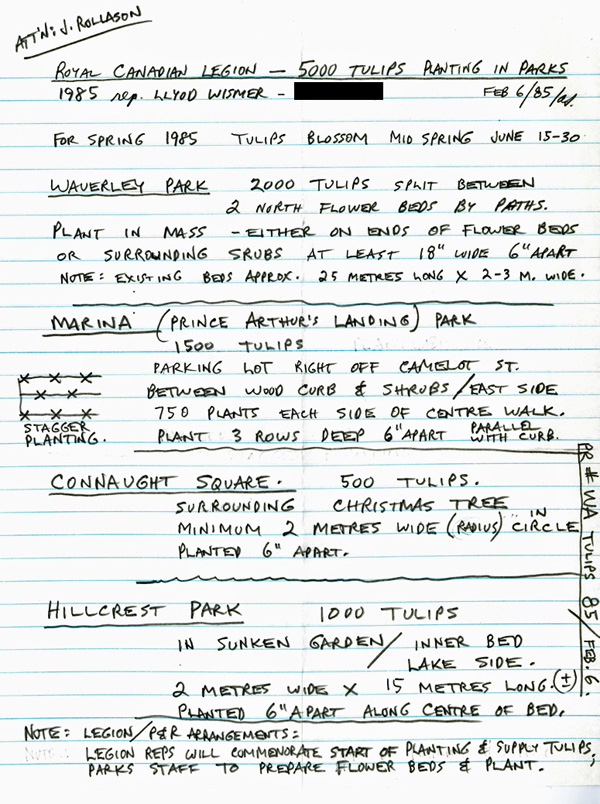 ATT'N: J. ROLLASON
ROYAL CANADIAN LEGION — 5000 TULIPS PLANTING IN PARKS
1985 rep. LLYOD WISMER -
FEB 6/85/
FOR SPRING 1985 TULIPS BLOSSOM MID SPRING JUNE 15-30
WAVERLEY PARK 2000 TULIPS SPLIT BETWEEN
2 NORTH FLOWER BEDS BY PATHS.
PLANT IN MASS - EITHER ON ENDS OF FLOWER BEDS
OR SURROUNDING SRUBS AT LEAST 18" WIDE 6" APART
NOTE: EXISTING BEDS APPROX. 25 METRES LONG X 2-3 M. WIDE.
MARINA (PRINCE ARTHUR'S LANDING) PARK
1500 TULIPS
PARKING LOT RIGHT OFF CAMELOT ST.
BETWEEN WOOD CURB & SHRUBS / EAST SIDE
750 PLANTS EACH SIDE OF CENTRE WALK.
STAGGER
PLANTING.
PLANT 3 ROWS DEEP 6" APART PARALLEL
WITH CURB.
CONNAUGHT SQUARE. 500 TULIPS.
SURROUNDING CHRISTMAS TREE IN
MINIMUM 2 METRES WIDE (RADIUS) CIRCLE
PLANTED 6" APART.
PR # WA TULIPS 85 / FEB. 6.
HILLCREST PARK 1000 TULIPS
IN SUNKEN GARDEN / INNER BED
LAKE SIDE.
2 METRES WIDE X 15 METRES LONG. (±)
PLANTED 6" APART ALONG CENTRE OF BED.
NOTE: LEGION / P&R ARRANGEMENTS:
LEGION REPS WILL COMMENORATE START OF PLANTING & SUPPLY TULIPS;
PARKS STAFF TO PREPARE FLOWER BEDS & PLANT.